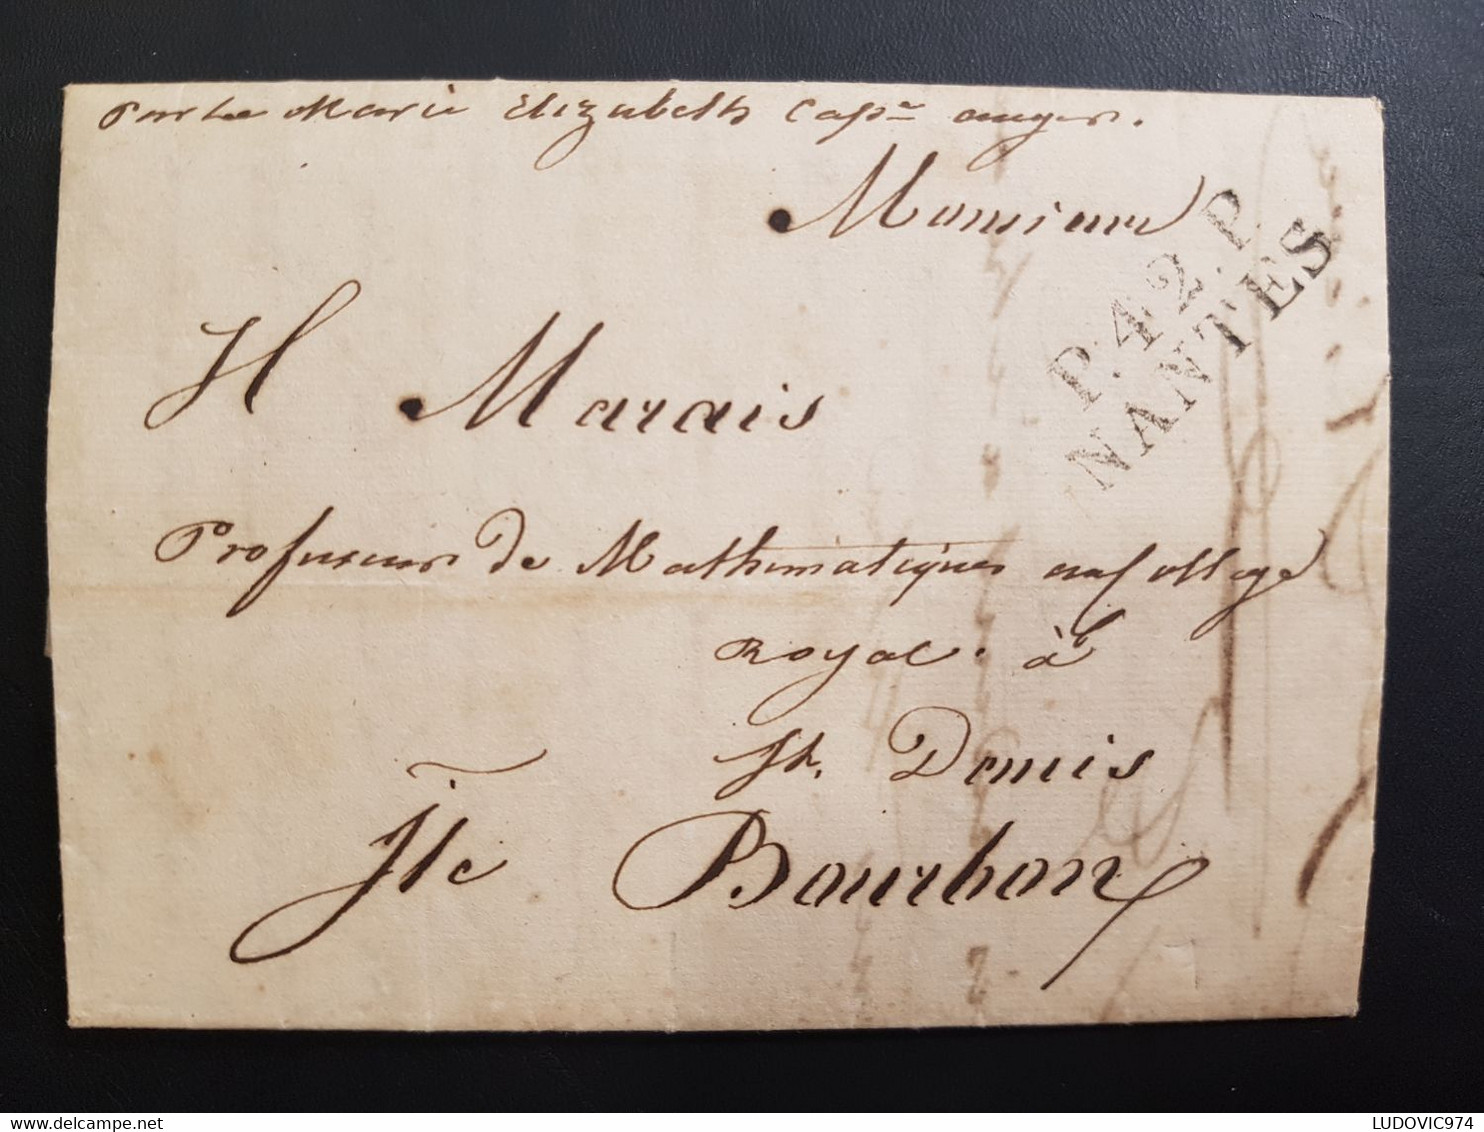 Par le Marie Elizabeth Capne auger.
Monsieur
P.42.P.
NANTES
H Marais
Professeur De Mathématiques au College
Royal. à
St. Denis
Ile Bourbon
delcampe.net
LUDOVIC974